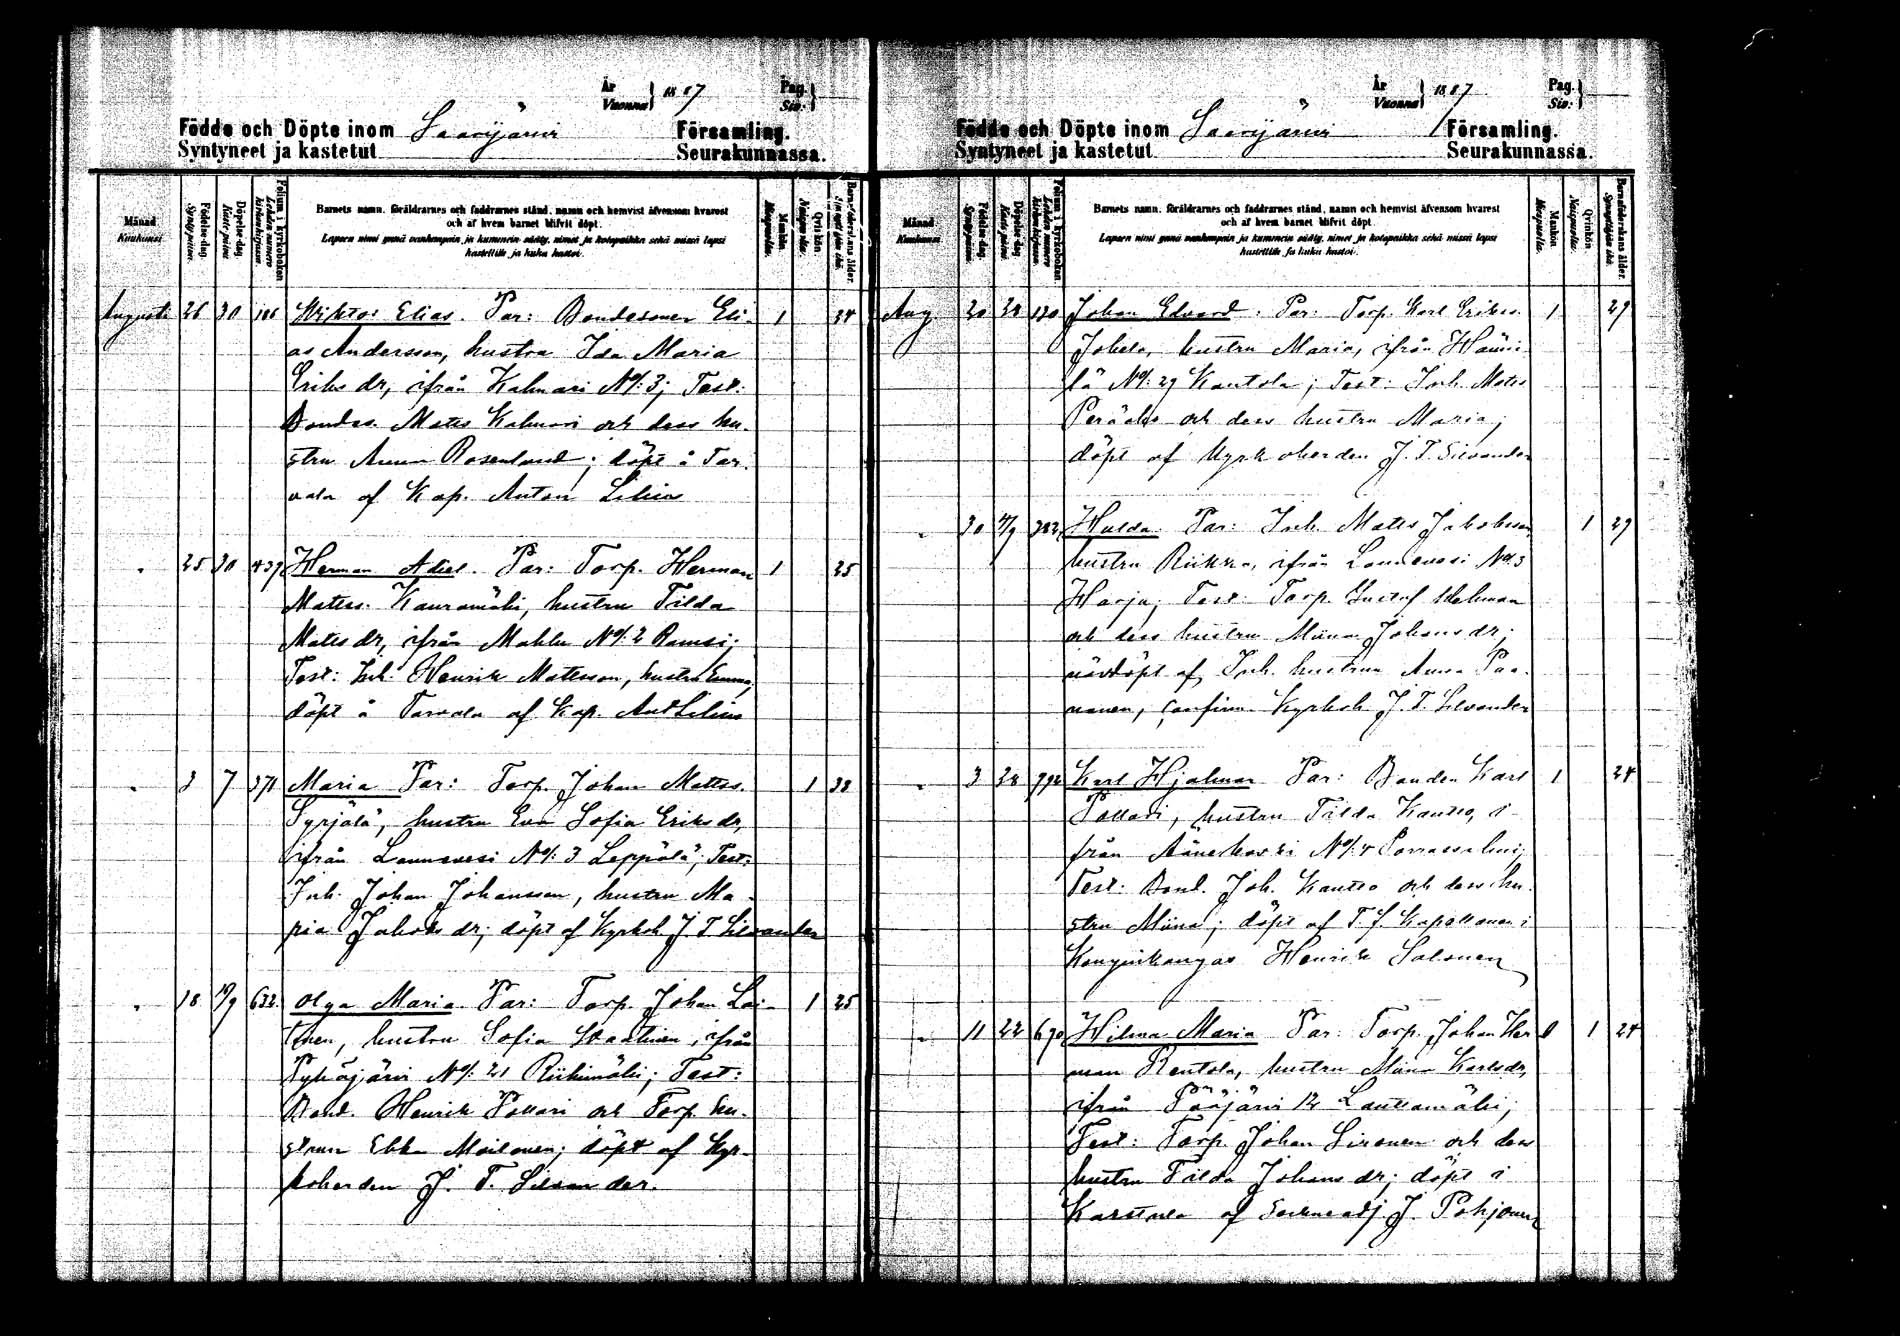 År
Vuonna } 1887
Pag.
Siv. }
Födde och Döpte inom Saarijärvi Församling.
Syntyneet ja kastetut Seurakunnassa.
Månad
Kuukausi
Födelse-dag.
Syntymäpäivä.
Döpelse-dag.
Kaste-päivä
Folium i kyrkoboken
Lehden numero kirkonkirjassa.
Barnets namn, föräldrarnes och faddrarnes stånd, namn och hemvist äfvensom hvarest
och af hvem barnet blifvit döpt.
Lapsen nimi ynnä vanhempain ja kummein sääty, nimet ja kotopaikka sekä missä lapsi
kastettiin ja kuka kastoi.
Mankön.
Miespuolta.
Qvinkön.
Naispuolta.
Barnaföderskans ålder.
Synnyttäjän ikä.
Augusti 26 30 186 Wiktor Elias. Par: Bondesonen Eli- 1 34
as Andersson, hustru Ida Maria
Eriksdr, ifrån Kalmari No: 3; Test:
Bondes. Matts Kalmari och dess hu-
stru Anna Rosenlund; döpt å Tar-
vala af Kap. Anton Lilius
" 25 30 439 Herman Adiel. Par: Torp. Herman 1 25
Mattss. Kauramäki, hustru Tilda
Mattsdr, ifrån Mahlu No: 2 Ramsi;
Test: Inh. Henrik Mattsson, hustru Emma;
döpt å Tarvala af Kap. Ant Lilius
" 3 7 371 Maria Par: Torp. Johan Mattss. 1 38
Syrjälä, hustru Eva Sofia Eriksdr,
ifrån Lannevesi No: 3 Leppälä; Test:
Inh. Johan Johansson, hustru Ma-
ria Jakobsdr; döpt af Kyrkoh. J. T. Silvander
" 18 19/9 632 Olga Maria Par: Torp. Johan Lai- 1 25
tinen, hustru Sofia ifrån
Pyhäjärvi No: 21 Riihimäki; Test:
Bond. Henrik Pollari och Torp. hu-
strun Ebba Moilanen; döpt af Kyr-
koherden J. T. Silvander.
År
Vuonna } 1887
Pag.
Siv. }
Födde och Döpte inom Saarijärvi Församling.
Syntyneet ja kastetut Seurakunnassa.
Månad
Kuukausi
Födelse-dag.
Syntymäpäivä.
Döpelse-dag.
Kaste-päivä
Folium i kyrkoboken
Lehden numero kirkonkirjassa.
Barnets namn, föräldrarnes och faddrarnes stånd, namn och hemvist äfvensom hvarest
och af hvem barnet blifvit döpt.
Lapsen nimi ynnä vanhempain ja kummein sääty, nimet ja kotopaikka sekä missä lapsi
kastettiin ja kuka kastoi.
Mankön
Miespuolta.
Qvinkön
Naispuolta.
Barnaföderskans ålder.
Synnyttäjän ikä.
Aug. 20 28 130 Johan Edvard. Par: Torp. Karl Erikss. 1 29
Jokela, hustru Maria, ifrån Häkki-
lä No: 29 Kantola; Test: Inh. Matts
Peräaho och dess hustru Maria;
döpt af Kyrkoherden J. T. Silvander
" 30 4/9 382 Hulda. Par: Inh. Matts Jakobsson, 1 29
hustru Riikka, ifrån Lannevesi No: 3
Harju; Test: Torp. Gustaf Helman
och dess hustru Miina Johansdr;
nöddöpt af Inh. hustrun Anna Paa-
nanen, confirm. Kyrkoh. J. T. Silvander
" 3 28 792 Karl Hjalmar Par: Bonden Karl 1 24
Pollari, hustru Tilda Kautto, i-
från Äänekoski No: 4 Porrassalmi;
Test: Bond. Joh. Kautto och dess hu-
stru Miina; döpt af T. f. Kapellanen i
Konginkangas Henrik Salonen
" 11 22 690 Hilma Maria Par: Torp. Johan Her- 1 24
man Rentola, hustru Miina Karlsdr,
ifrån Pääjärvi 12 Lauttamäki;
Test: Torp. Johan Sironen och dess
hustru Tilda Johansdr; döpt i
Karstula af Sockneadj. J. Pohjonen